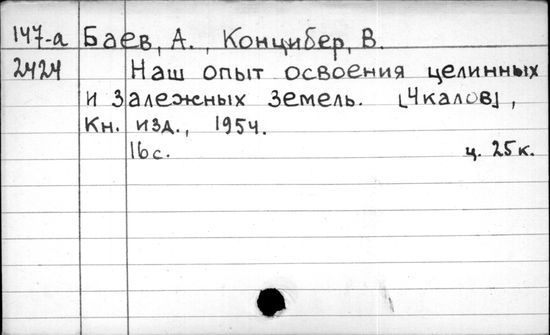 147-а Баев, А., Концибер, В.
2424 Наш опыт освоения целинных
и залежных земель. [Чкалов],
Кн. изд., 1954.
16с. ц. 25к.